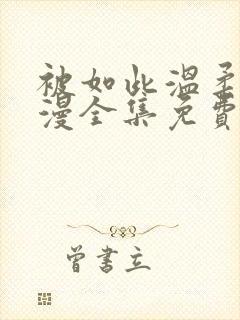 被如此温柔
漫全集免费
曾书立